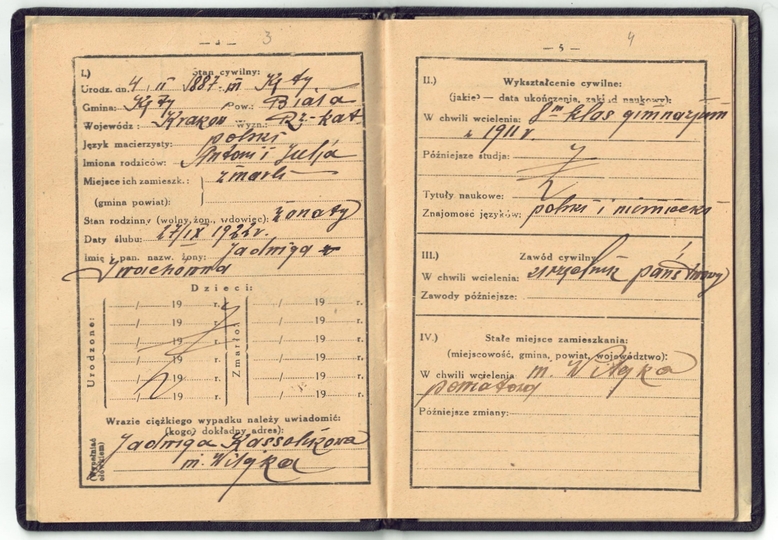 3
I.) Stan cywilny:
Urodz. dn. 4 II 1887 m Kęty
Gmina: Kęty Pow. Biała
Wojewódz: Krakow wyzn.: Rz-kat
Język macierzysty: polski
Imiona rodziców: Antoni i Julja
Miejsce ich zamieszk.: zmarli
(gmina powiat):
Stan rodzinny (wolny, żon., wdowiec): żonaty
Daty ślubu: 27/IX 1922 r.
Imię i pan. nazw. żony: Jadwiga
Iwachowna
Dzieci:
Urodzone:
Zmarło:
/ 19 r. / 19 r.
/ 19 r. / 19 r.
/ 19 r. / 19 r.
/ 19 r. / 19 r.
/ 19 r. / 19 r.
/ 19 r. / 19 r.
W razie ciężkiego wypadku należy uwiadomić:
(kogo? dokładny adres):
(Wypełniać ołówkiem)
Jadwiga
m. Wilejka
— 5 — 4
II.) Wykształcenie cywilne:
(jakie? — data ukończenia, zakład naukowy):
W chwili wcielenia: 8m klas gimnazjum
z 1911 r.
Późniejsze studja:
Tytuły naukowe:
Znajomość języków: polski i niemiecki
III.) Zawód cywilny
W chwili wcielenia: urzędnik państwowy
Zawody późniejsze:
IV.) Stałe miejsce zamieszkania:
(miejscowość, gmina, powiat, województwo):
W chwili wcielenia: m. Wilejka
powiatowy
Późniejsze zmiany: